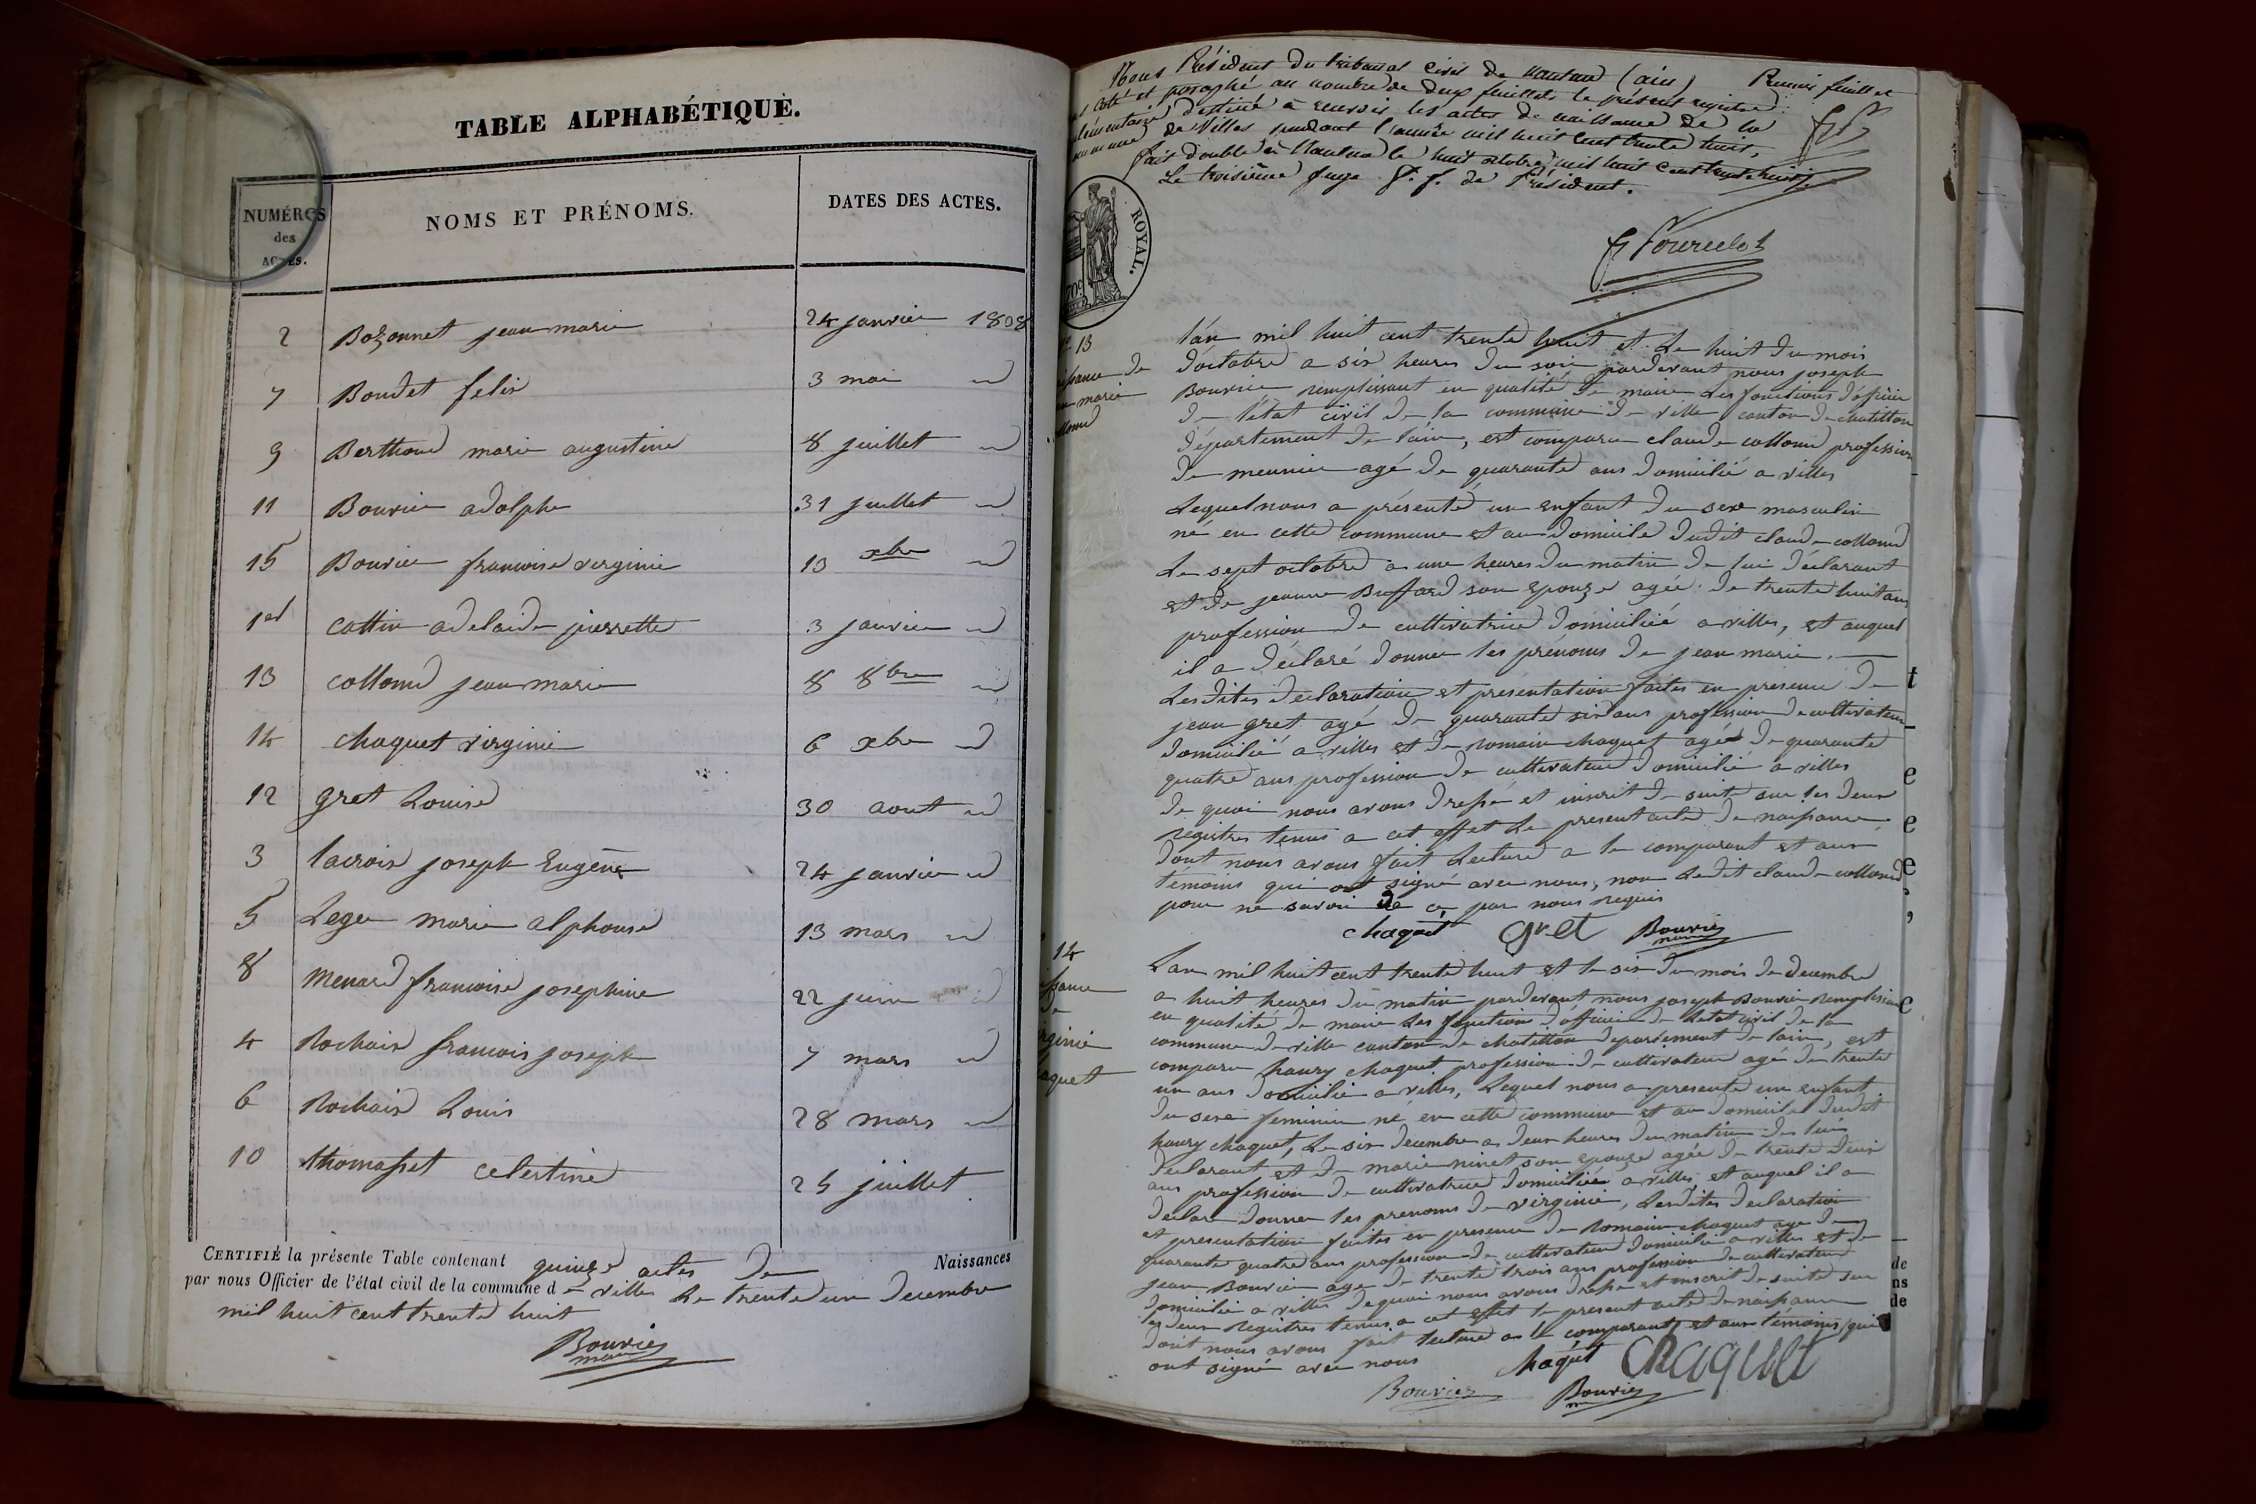 TABLE ALPHABÉTIQUE.
NUMÉROS des ACTES.
NOMS ET PRÉNOMS.
DATES DES ACTES.
2 Bozonnet jean marie 24 janvier 1838
7 Boudet felix 3 mai id
9 Berthoud marie augustine 8 juillet id
11 Bouvier adolphe 31 juillet id
15 Bouvier francoise virginie 13 xbre id
1er cottin adelaide pierrette 3 janvier id
13 collomd jean marie 8 8bre id
14 chaquet virginie 6 xbre id
12 gret Louise 30 aout id
3 lacroix joseph Eugène 24 janvier id
5 Leger marie alphonse 13 mars id
8 Menard francoise josephine 22 juin id
4 Rochaix francois joseph 7 mars id
6 Rochaix Louis 28 mars id
10 thomasset celestine 25 juillet
CERTIFIÉ la présente Table contenant quinze actes de Naissances
par nous Officier de l'état civil de la commune de villes Le trente un Decembre
mil huit cent trente huit
Bouvier
maire
Nous Président du tribunal Civil de Nantua (ain) Premier feuillet
Coté et paraphé au nombre de deux feuillets le présent registre
destiné à recevoir les actes de naissance de la
de Villes pendant l'année mil huit cent trente huit,
fait double à Nantua le huit octobre mil huit cent trente huit
Le troisième juge f. f. de Président.
ROYAL.
13
l'an mil huit cent trente huit et Le huit du mois
d'octobre a six heures du soir pardevant nous joseph
Bouvier remplissant en qualité de maire Les fonctions d'oficier
de l'état civil de la commune de ville canton de chatillon
département de l'ain, est comparu claude collomd profession
de meunier agé de quarante ans domicilié a villes
Lequel nous a présenté un enfant du sexe masculin
né en cette commune et au domicile dudit claude collomd
Le sept octobre a une heures du matin de lui déclarant
et de jeanne Buffard son epouze agée de trente huit ans
profession de cultivatrice domiciliée a villes, et auquel
il a déclaré donner les prénoms de jean marie.
Lesdites declaration et presentation faites en presence de
jean gret agé de quarante six ans profession de cultivateur
domicilié a villes et de romain chaquet agé de quarante
quatre ans profession de cultivateur domicilié a villes
de quoi nous avons dressé et inscrit de suite sur les deux
registres tenus a cet effet Le present acte de naissance
dont nous avons fait Lecture a le comparant et aux
témoins qui ont signé avec nous, non Ledit claude collomd
pour ne savoir de ce par nous requis
chaquet gret Bouvier
maire
14
L'an mil huit cent trente huit et le six du mois de decembre
a huit heures du matin pardevant nous joseph Bouvier remplissant
en qualité de maire Les fonction d'officier de l'etat civil de la
commune de ville canton de chatillon departement de l'ain, est
comparu haury chaquet profession de cultivateur agé de trente
un ans domicilié a villes, Lequel nous a presenté un enfant
du sexe feminin né en cette commune et au domicile dudit
haury chaquet, Le six decembre a deux heures du matin de lui
declarant et de marie ninet son epouze agée de trente deux
ans profession de cultivatrice domiciliée a villes, et auquel il a
declaré donner les prenoms de virginie, Lesdites declaration
et presentation faites en presence de Romain chaquet age de
quarante quatre ans profession de cultivateur domicilié a villes et de
jean Bouvier age de trente trois ans profession de cultivateur
domicilié a villes de quoi nous avons dressé et inscrit de suite sur
les deux registres tenus a cet effet le present acte de naissance
dont nous avons fait lecture a le comparant et aux témoins qui
ont signé avec nous
chaquet CHaquet
Bouvier Bouvier